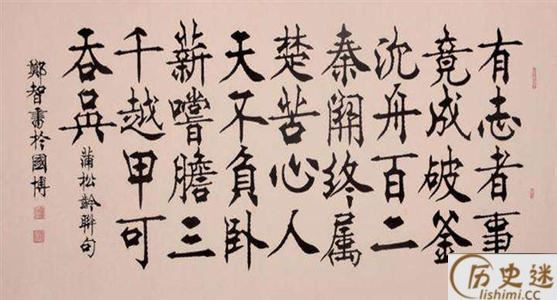 有志者事
竟成破釜
沈舟百二
秦關终属
楚苦心人
天不負卧
薪嚐膽三
千越甲可
吞吴
蒲松齡聯句
鄭智書於國博
历史迷
lishimi.cc